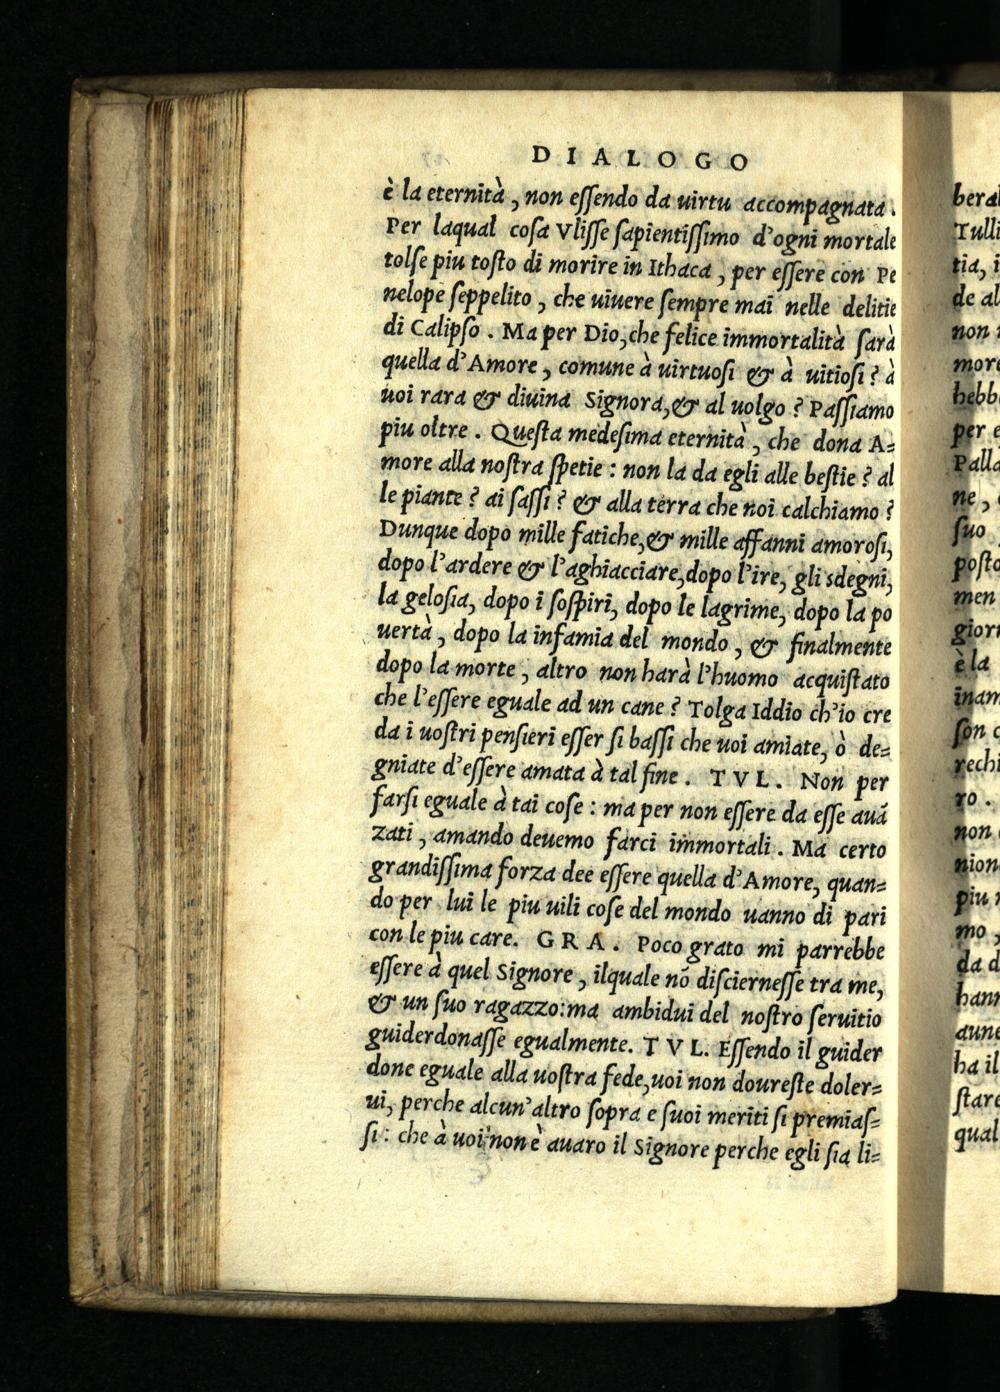 DIALOGO
è la eternità, non eſſendo da uirtu accompagnata.
Per laqual coſa Vliſſe ſapientiſſimo d'ogni mortale
tolſe piu toſto di morire in Ithaca, per eſſere con Pe
nelope ſeppelito, che uiuere ſempre mai nelle delitie
di Calipſo. Ma per Dio, che felice immortalità ſarà
quella d'Amore, comune à uirtuoſi & à uitioſi? à
uoi rara & diuina Signora, & al uolgo? Paſſiamo
piu oltre. Queſta medeſima eternità, che dona A=
more alla noſtra ſpetie: non la da egli alle beſtie? al
le piante? ai ſaſſi? & alla terra che noi calchiamo?
Dunque dopo mille fatiche, & mille affanni amoroſi,
dopo l'ardere & l'aghiacciare, dopo l'ire, gli sdegni,
la geloſia, dopo i ſoſpiri, dopo le lagrime, dopo la po
uertà, dopo la infamia del mondo, & finalmente
dopo la morte, altro non harà l'huomo acquiſtato
che l'eſſere eguale ad un cane? Tolga Iddio ch'io cre
da i uoſtri penſieri eſſer ſi baſſi che uoi amiate, ò de=
gniate d'eſſere amata à tal fine. TVL. Non per
farſi eguale à tai coſe: ma per non eſſere da eſſe auā
zati, amando deuemo farci immortali. Ma certo
grandiſſima forza dee eſſere quella d'Amore, quan=
do per lui le piu uili coſe del mondo uanno di pari
con le piu care. GRA. Poco grato mi parrebbe
eſſere à quel Signore, ilquale nō diſcierneſſe tra me,
& un ſuo ragazzo: ma ambidui del noſtro ſeruitio
guiderdonaſſe egualmente. TVL. Eſſendo il guider
done eguale alla uoſtra fede, uoi non doureſte doler=
ui, perche alcun'altro ſopra e ſuoi meriti ſi premiaſ=
ſi: che à uoi non è auaro il Signore perche egli ſia li=
beral
Tulli
tia, i
de al
non
more
hebbe
per e
Palla
ne,
ſuo
poſto
men
giorn
è la
inam
ſon
rechi
ro.
non
nion
piu
mo,
da d
hann
aune
ha il
ſtare
qual